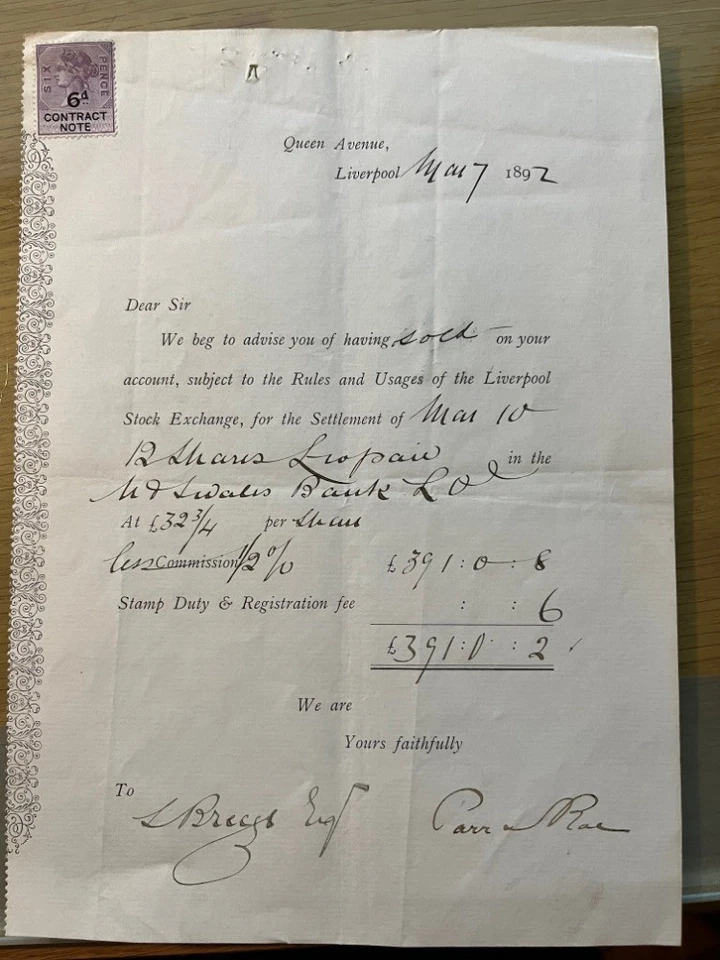 SIX PENCE
6d
CONTRACT
NOTE
Queen Avenue,
Liverpool Mar 7 1892
Dear Sir
We beg to advise you of having sold on your
account, subject to the Rules and Usages of the Liverpool
Stock Exchange, for the Settlement of Mar 10
12 Shares £10 paid in the
N & S Wales Bank Ld
At £32 3/4 per Share
less Commission 1/2 % £391 : 0 : 8
Stamp Duty & Registration fee : : 6
£391 : 0 : 2
We are
Yours faithfully
To
Esq Parr & Rae